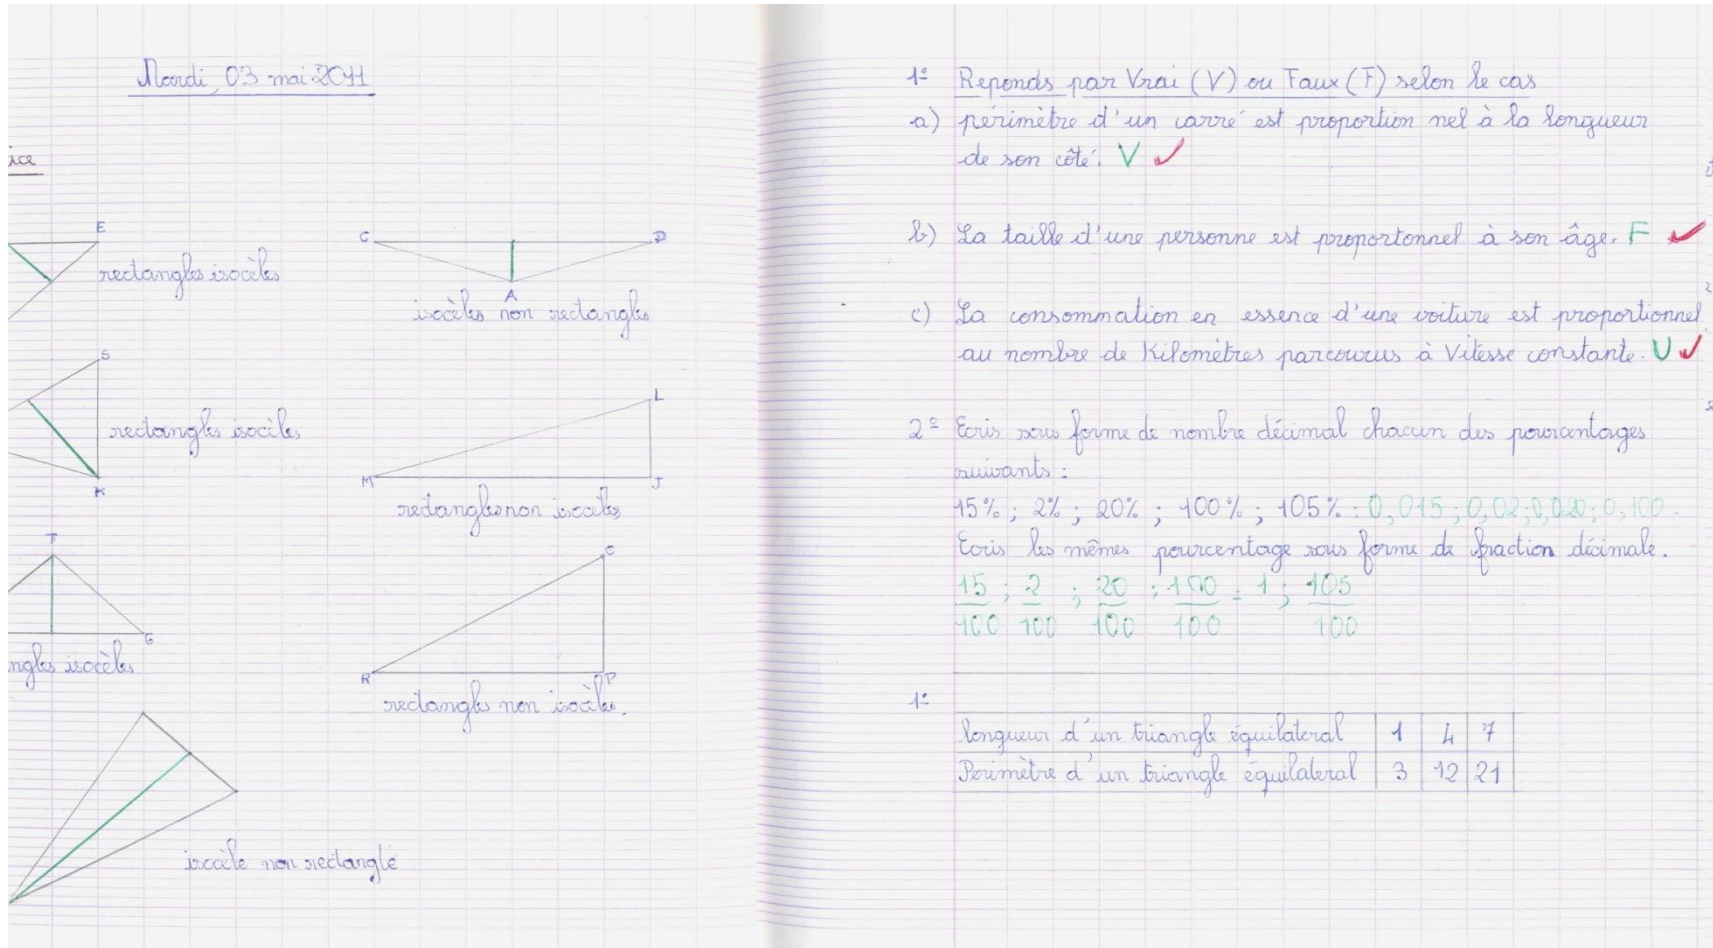 Mardi, 03 mai 2011
ice
E
rectangles isocèles
C D
A
isocèles non rectangles
S
rectangles isocèles
K
L
M J
rectangles non isocèles
T
G
ngles isocèles
C
R P
rectangles non isocèles.
isocèle non rectangle
1° Reponds par Vrai (V) ou Faux (F) selon le cas
a) périmètre d'un carré est proportion nel à la longueur
de son côté. V ✓
b) La taille d'une personne est proportonnel à son âge. F ✓
c) La consommation en essence d'une voiture est proportionnel
au nombre de Kilomètres parcourus à Vitesse constante. V ✓
2° Ecris sous forme de nombre décimal chacun des pourcentages
suivants :
15% ; 2% ; 20% ; 100% ; 105% : 0,015 ; 0,02 ; 0,020 ; 0,100.
Ecris les mêmes pourcentage sous forme de fraction décimale.
15/100 ; 2/100 ; 20/100 ; 100/100 = 1 ; 105/100
1°
longueur d'un triangle équilateral 1 4 7
Perimètre d'un triangle équilateral 3 12 21